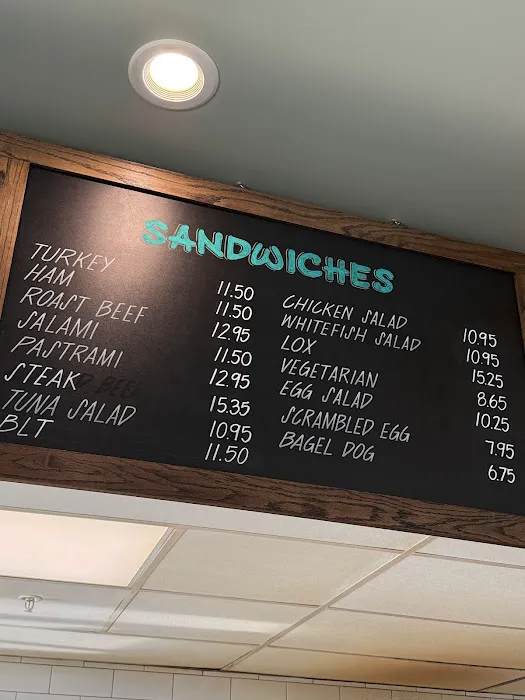 SANDWICHES
TURKEY 11.50
HAM 11.50
ROAST BEEF 12.95
SALAMI 11.50
PASTRAMI 12.95
STEAK 15.35
TUNA SALAD 10.95
BLT 11.50
CHICKEN SALAD 10.95
WHITEFISH SALAD 10.95
LOX 15.25
VEGETARIAN 8.65
EGG SALAD 10.25
SCRAMBLED EGG 7.95
BAGEL DOG 6.75